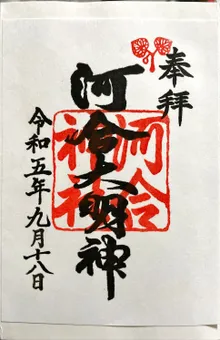 奉拝
河合大明神
河合神社
令和五年九月十八日